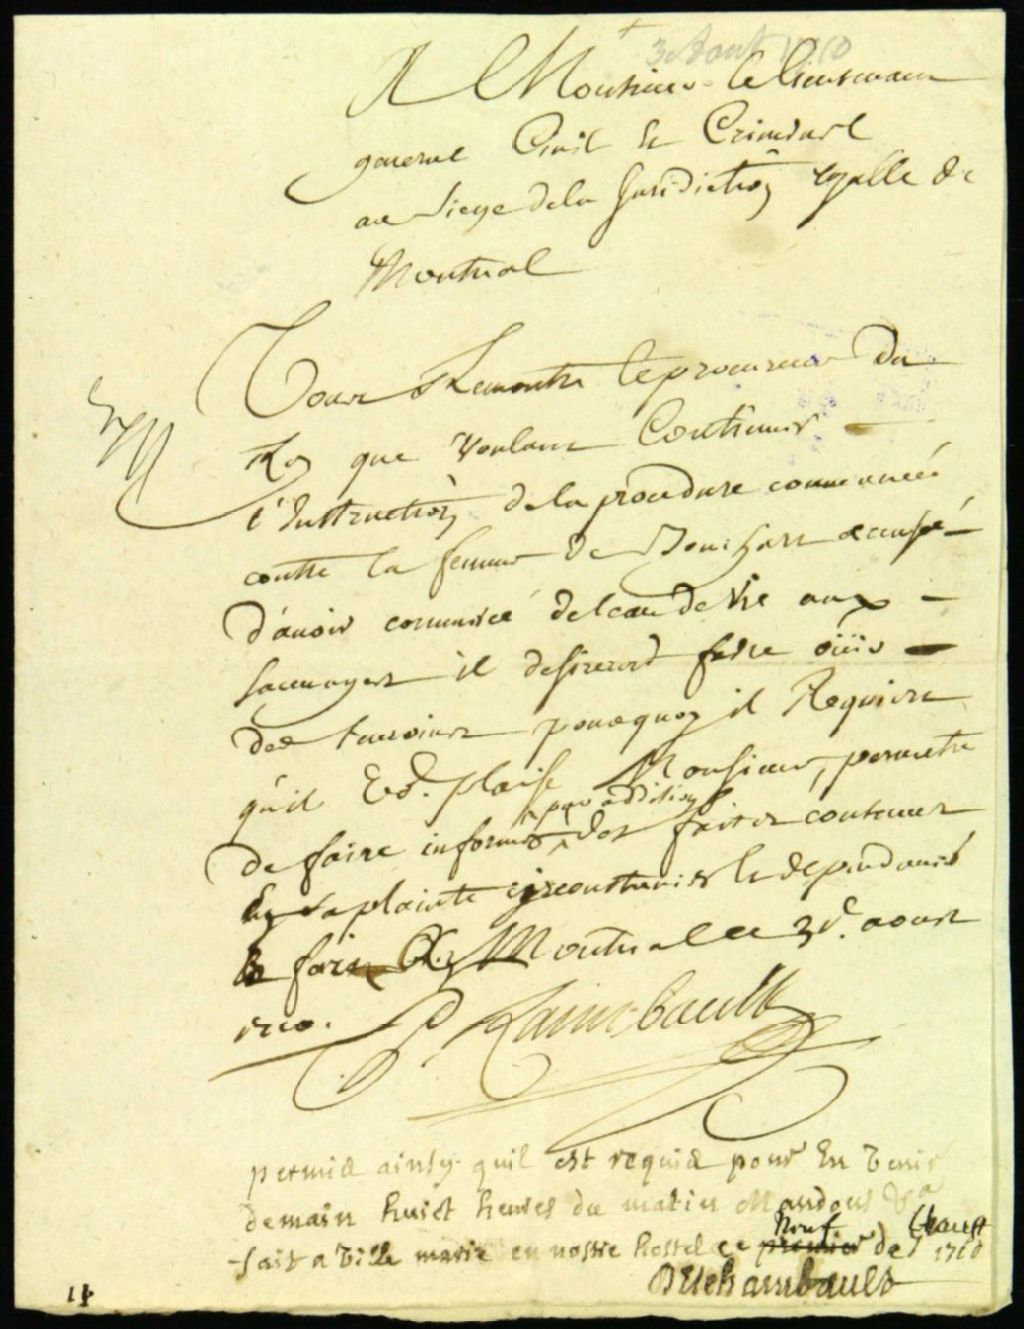 30 Aout 1710
A Monsieur le lieutenant
general Civil et Criminel
au siege de la Juridiction royalle de
Montreal
Vous Remontre le procureur du
Roy que voulant Continuer
l'Instruction de la procedure commancée
contre la femme de accusé
d'auoir commercé de leau de vie aux
sauuages il desireroit faire oüir
des temoins pourquoy il Requiere
qu'il Vo. plaise Monsieur, permettre
de faire informer par addition des faits contenus
En sa plainte circonstances et dependances
Montreal ce 3e. aoust
1710. P Raimbault
permis ainsy quil est requis pour En Venir
demain huict heures du matin Mandons &a
fait a Ville marie en nostre hostel ce premier Neuf de Aoust 1710
Deschambault
11